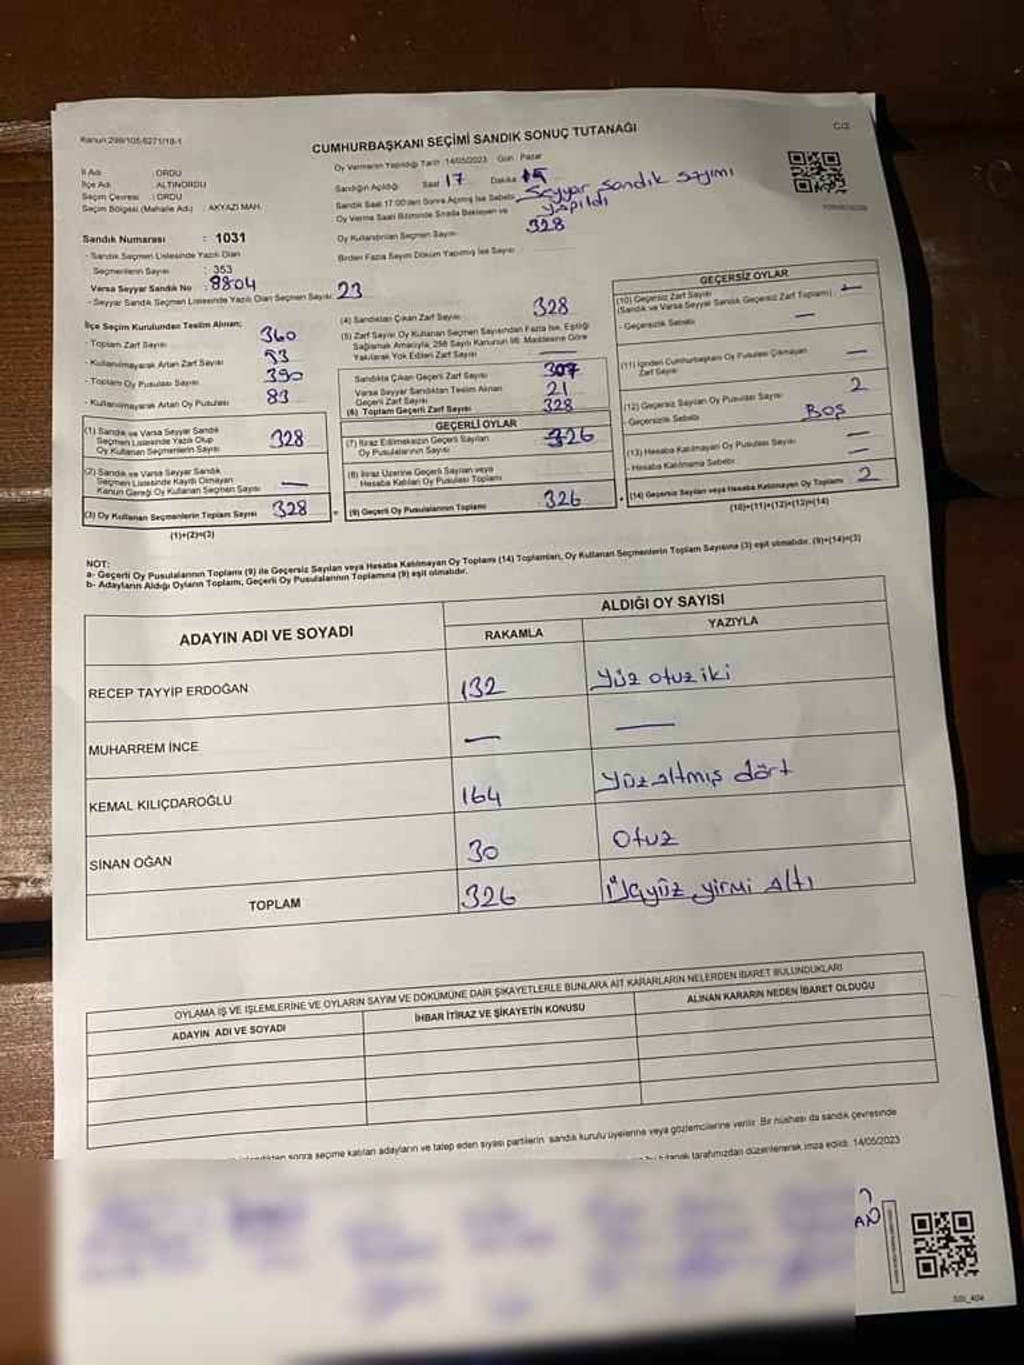 Kanun 298/105,6271/18-1
C/2
CUMHURBAŞKANI SEÇİMİ SANDIK SONUÇ TUTANAĞI
İl Adı : ORDU
İlçe Adı : ALTINORDU
Seçim Çevresi : ORDU
Seçim Bölgesi (Mahalle Adı) : AKYAZI MAH.
Oy Vermenin Yapıldığı Tarih : 14/05/2023 Gün : Pazar
Sandığın Açıldığı Saat 17 Dakika
Sandık Saat 17:00'den Sonra Açılmış İse Sebebi Seyyar sandık sayımı
yapıldı
Oy Verme Saati Bitiminde Sırada Bekleyen ve
Oy Kullandırılan Seçmen Sayısı 328
Birden Fazla Sayım Döküm Yapılmış İse Sayısı
Sandık Numarası : 1031
- Sandık Seçmen Listesinde Yazılı Olan
Seçmenlerin Sayısı : 353
Varsa Seyyar Sandık No : 8804
- Seyyar Sandık Seçmen Listesinde Yazılı Olan Seçmen Sayısı: 23
İlçe Seçim Kurulundan Teslim Alınan;
- Toplam Zarf Sayısı 360
- Kullanılmayarak Artan Zarf Sayısı 53
- Toplam Oy Pusulası Sayısı 390
- Kullanılmayarak Artan Oy Pusulası 83
(1) Sandık ve Varsa Seyyar Sandık
Seçmen Listesinde Yazılı Olup
Oy Kullanan Seçmenlerin Sayısı 328
(2) Sandık ve Varsa Seyyar Sandık
Seçmen Listesinde Kaydı Olmayan
Kanun Gereği Oy Kullanan Seçmen Sayısı —
(3) Oy Kullanan Seçmenlerin Toplam Sayısı 328
(1)+(2)=(3)
(4) Sandıktan Çıkan Zarf Sayısı 328
(5) Zarf Sayısı Oy Kullanan Seçmen Sayısından Fazla İse, Eşitliği
Sağlamak Amacıyla, 298 Sayılı Kanunun 98. Maddesine Göre
Yakılarak Yok Edilen Zarf Sayısı —
Sandıkta Çıkan Geçerli Zarf Sayısı 307
Varsa Seyyar Sandıktan Teslim Alınan
Geçerli Zarf Sayısı 21
(6) Toplam Geçerli Zarf Sayısı 328
GEÇERLİ OYLAR
(7) İtiraz Edilmeksizin Geçerli Sayılan
Oy Pusulalarının Sayısı 326
(8) İtiraz Üzerine Geçerli Sayılan veya
Hesaba Katılan Oy Pusulası Toplamı
(9) Geçerli Oy Pusulalarının Toplamı 326
GEÇERSİZ OYLAR
(10) Geçersiz Zarf Sayısı
(Sandık ve Varsa Seyyar Sandık Geçersiz Zarf Toplamı) —
- Geçersizlik Sebebi —
(11) İçinden Cumhurbaşkanı Oy Pusulası Çıkmayan
Zarf Sayısı —
(12) Geçersiz Sayılan Oy Pusulası Sayısı 2
- Geçersizlik Sebebi Boş
(13) Hesaba Katılmayan Oy Pusulası Sayısı —
- Hesaba Katılmama Sebebi —
(14) Geçersiz Sayılan veya Hesaba Katılmayan Oy Toplamı 2
(10)+(11)+(12)+(13)=(14)
NOT:
a- Geçerli Oy Pusulalarının Toplamı (9) ile Geçersiz Sayılan veya Hesaba Katılmayan Oy Toplamı (14) Toplamları, Oy Kullanan Seçmenlerin Toplam Sayısına (3) eşit olmalıdır. (9)+(14)=(3)
b- Adayların Aldığı Oyların Toplamı, Geçerli Oy Pusulalarının Toplamına (9) eşit olmalıdır.
ADAYIN ADI VE SOYADI
ALDIĞI OY SAYISI
RAKAMLA YAZIYLA
RECEP TAYYİP ERDOĞAN 132 Yüz otuz iki
MUHARREM İNCE — —
KEMAL KILIÇDAROĞLU 164 Yüz altmış dört
SİNAN OĞAN 30 Otuz
TOPLAM 326 Üçyüz yirmi altı
OYLAMA İŞ VE İŞLEMLERİNE VE OYLARIN SAYIM VE DÖKÜMÜNE DAİR ŞİKAYETLERLE BUNLARA AİT KARARLARIN NELERDEN İBARET BULUNDUKLARI
ADAYIN ADI VE SOYADI İHBAR İTİRAZ VE ŞİKAYETİN KONUSU ALINAN KARARIN NEDEN İBARET OLDUĞU
sonra seçime katılan adayların ve talep eden siyasi partilerin sandık kurulu üyelerine veya gözlemcilerine verilir. Bir nüshası da sandık çevresinde
tutanak tarafımızdan düzenlenerek imza edildi. 14/05/2023
AN
SSI_404